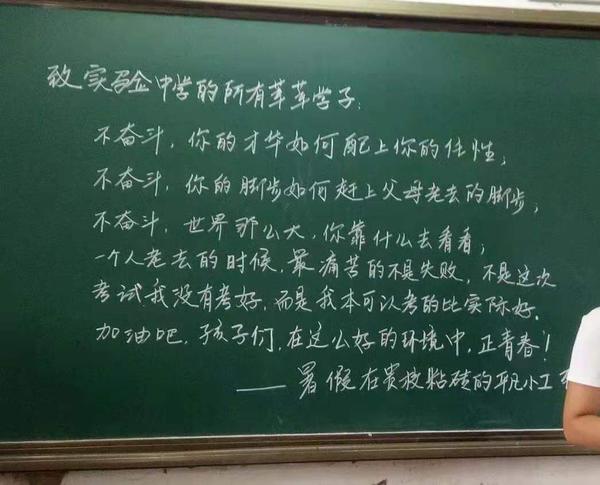 致实验中学的所有莘莘学子:
不奋斗,你的才华如何配上你的任性;
不奋斗,你的脚步如何赶上父母老去的脚步;
不奋斗,世界那么大,你靠什么去看看;
一个人老去的时候,最痛苦的不是失败,不是这次
考试我没有考好,而是我本可以考的比实际好.
加油吧,孩子们,在这么好的环境中,正青春!
——暑假在贵校粘砖的平凡小工